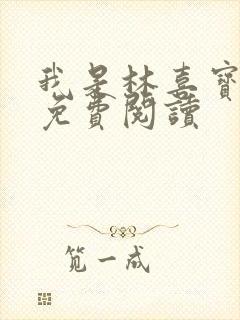 我是林喜寶
免費閱讀
笕一成